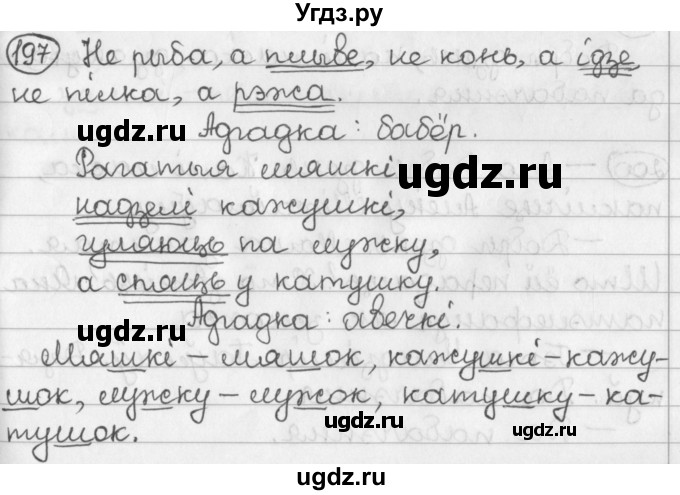 Угдз.ру
197 Не рыба, а плыве, не конь, а ідзе,
не пілка, а рэжа.
Адгадка: бабёр.
ugdz.ru
ugdz.ru
Рагатыя мяшкі
надзелі кажушкі,
гуляюць па лужку,
а спяць у катушку.
ugdz.ru
ugdz.ru
Адгадка: авечкі.
Мяшкі – мяшок, кажушкі – кажу-
шок, лужку – лужок, катушку – ка-
тушок.
ugdz.ru
ugdz.ru